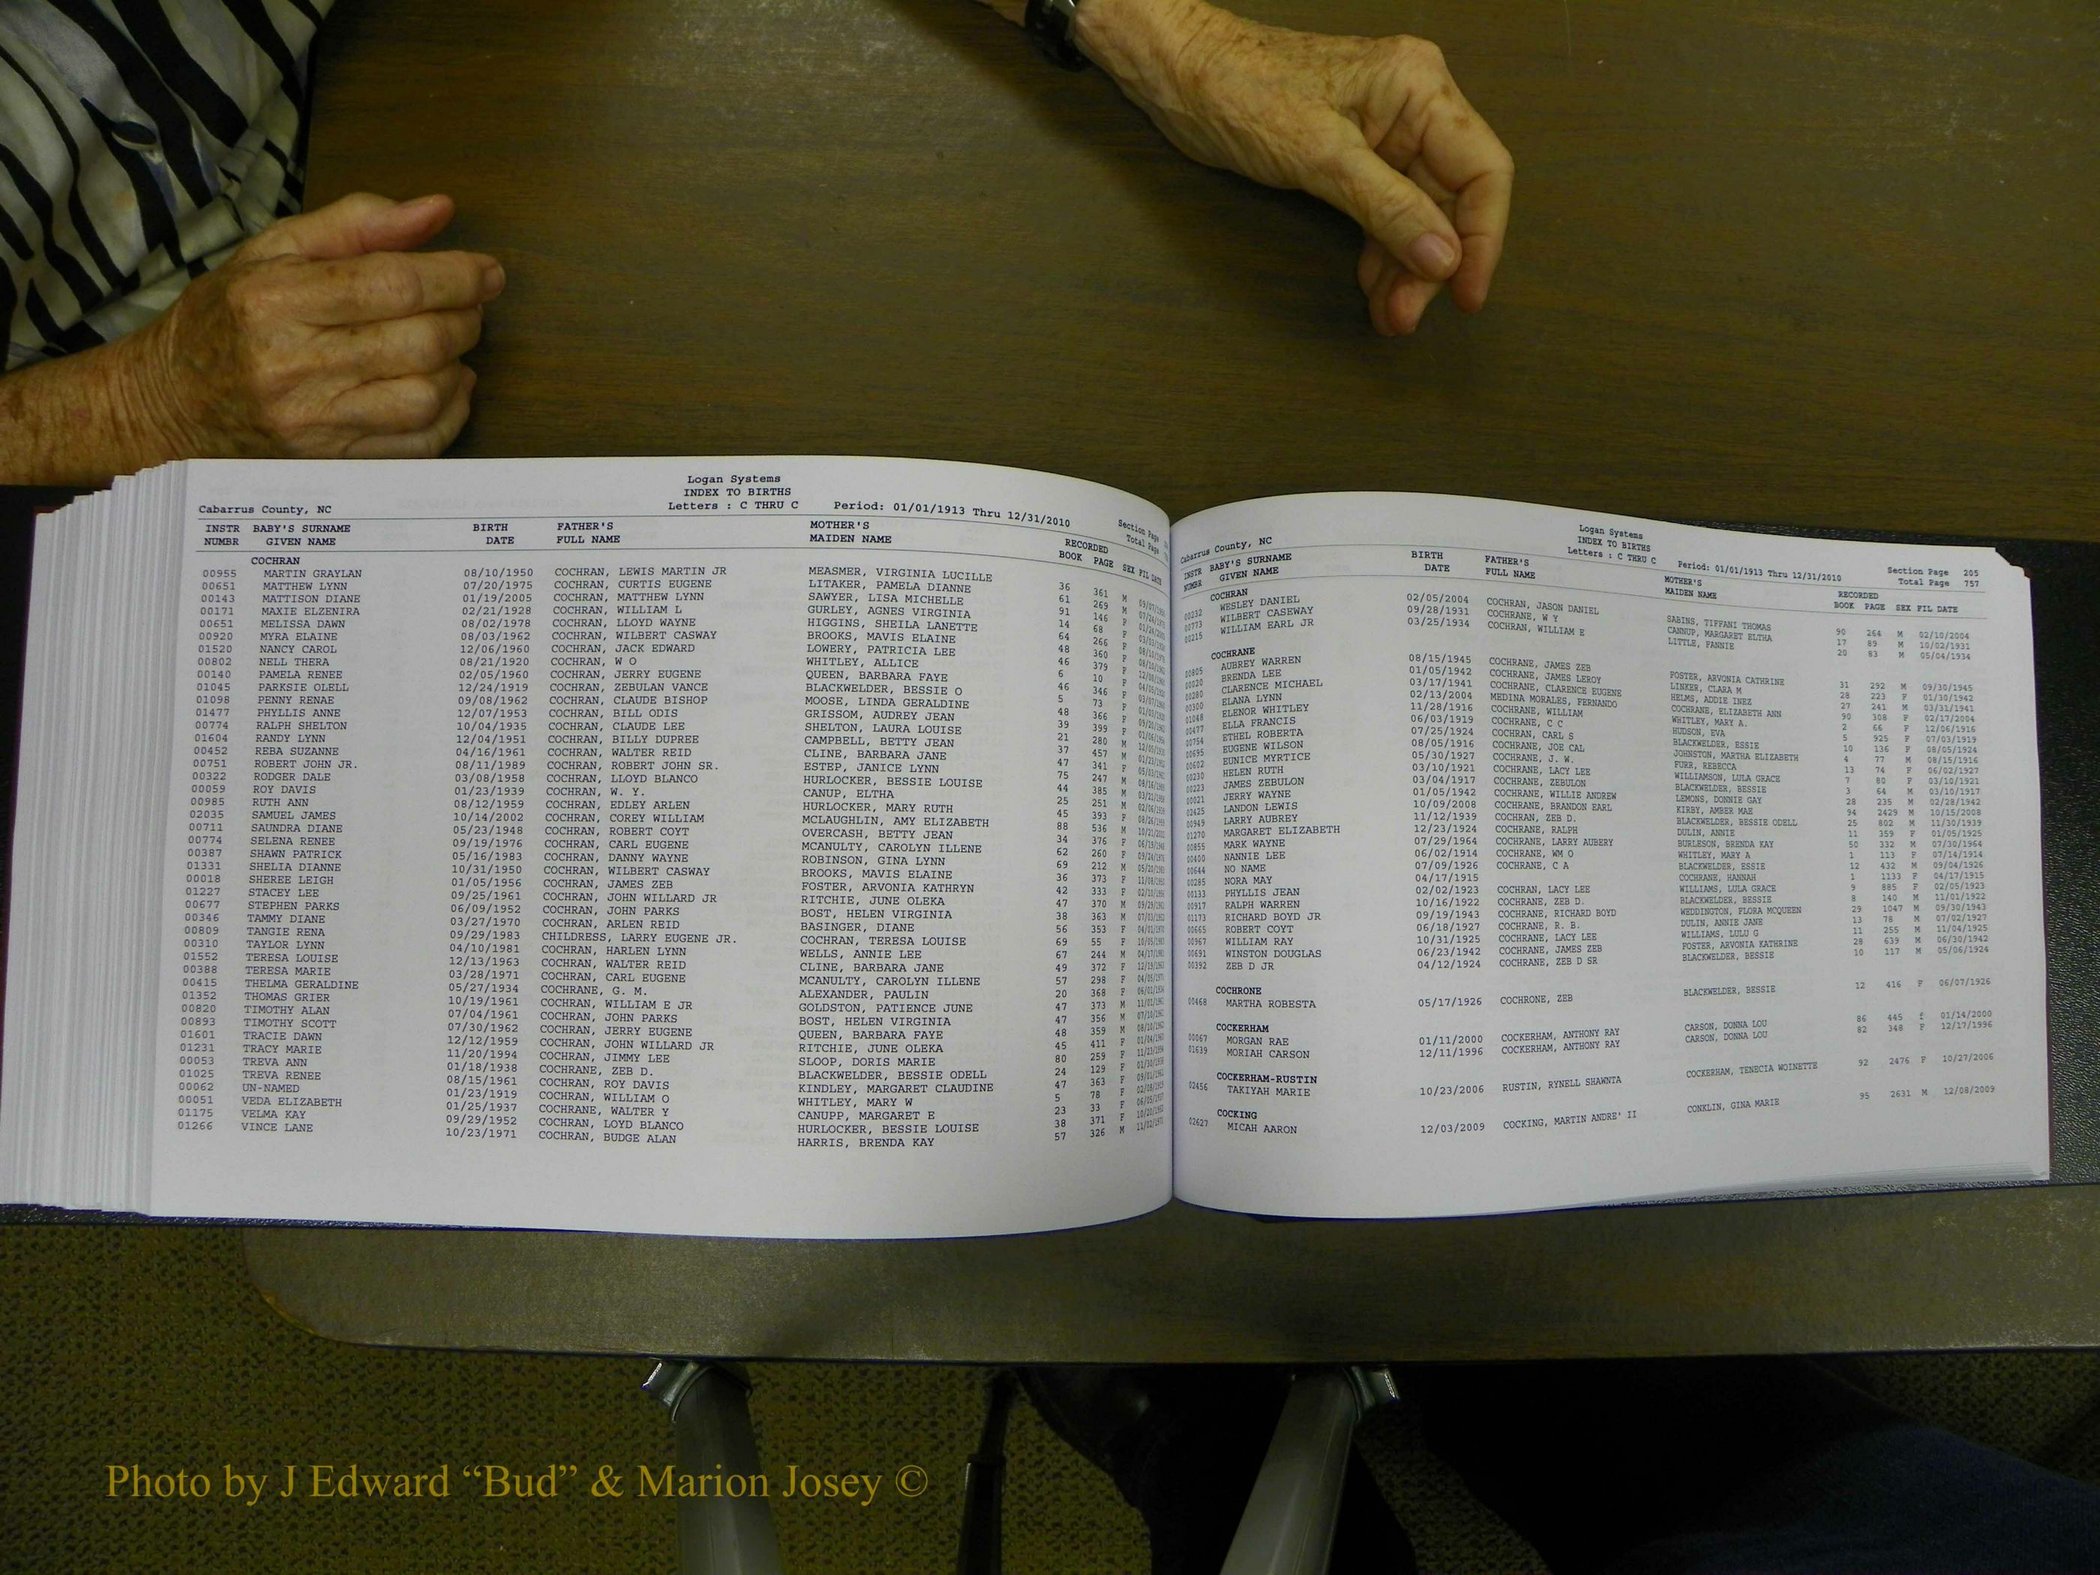 Logan Systems
INDEX TO BIRTHS
Cabarrus County, NC Letters : C THRU C Period: 01/01/1913 Thru 12/31/2010 Section Page
Total Page
INSTR BABY'S SURNAME BIRTH FATHER'S MOTHER'S RECORDED
NUMBR GIVEN NAME DATE FULL NAME MAIDEN NAME BOOK PAGE SEX FIL DATE
COCHRAN
00955 MARTIN GRAYLAN 08/10/1950 COCHRAN, LEWIS MARTIN JR MEASMER, VIRGINIA LUCILLE 36 361 M
00651 MATTHEW LYNN 07/20/1975 COCHRAN, CURTIS EUGENE LITAKER, PAMELA DIANNE 61 269 M
00143 MATTISON DIANE 01/19/2005 COCHRAN, MATTHEW LYNN SAWYER, LISA MICHELLE 91 146 F
00171 MAXIE ELZENIRA 02/21/1928 COCHRAN, WILLIAM L GURLEY, AGNES VIRGINIA 14 68 F
00651 MELISSA DAWN 08/02/1978 COCHRAN, LLOYD WAYNE HIGGINS, SHEILA LANETTE 64 266 F
00920 MYRA ELAINE 08/03/1962 COCHRAN, WILBERT CASWAY BROOKS, MAVIS ELAINE 48 360 F
01520 NANCY CAROL 12/06/1960 COCHRAN, JACK EDWARD LOWERY, PATRICIA LEE 46 379 F
00802 NELL THERA 08/21/1920 COCHRAN, W O WHITLEY, ALLICE 6 10 F
00140 PAMELA RENEE 02/05/1960 COCHRAN, JERRY EUGENE QUEEN, BARBARA FAYE 46 346 F
01045 PARKSIE OLELL 12/24/1919 COCHRAN, ZEBULAN VANCE BLACKWELDER, BESSIE O 5 73 F
01098 PENNY RENAE 09/08/1962 COCHRAN, CLAUDE BISHOP MOOSE, LINDA GERALDINE 48 366 F
01477 PHYLLIS ANNE 12/07/1953 COCHRAN, BILL ODIS GRISSOM, AUDREY JEAN 39 399 F
00774 RALPH SHELTON 10/04/1935 COCHRAN, CLAUDE LEE SHELTON, LAURA LOUISE 21 280 M
01604 RANDY LYNN 12/04/1951 COCHRAN, BILLY DUPREE CAMPBELL, BETTY JEAN 37 457 M
00452 REBA SUZANNE 04/16/1961 COCHRAN, WALTER REID CLINE, BARBARA JANE 47 341 F
00751 ROBERT JOHN JR. 08/11/1989 COCHRAN, ROBERT JOHN SR. ESTEP, JANICE LYNN 75 247 M
00322 RODGER DALE 03/08/1958 COCHRAN, LLOYD BLANCO HURLOCKER, BESSIE LOUISE 44 385 M
00059 ROY DAVIS 01/23/1939 COCHRAN, W. Y. CANUP, ELTHA 25 251 M
00985 RUTH ANN 08/12/1959 COCHRAN, EDLEY ARLEN HURLOCKER, MARY RUTH 45 393 F
02035 SAMUEL JAMES 10/14/2002 COCHRAN, COREY WILLIAM MCLAUGHLIN, AMY ELIZABETH 88 536 M
00711 SAUNDRA DIANE 05/23/1948 COCHRAN, ROBERT COYT OVERCASH, BETTY JEAN 34 376 F
00774 SELENA RENEE 09/19/1976 COCHRAN, CARL EUGENE MCANULTY, CAROLYN ILLENE 62 260 F
00387 SHAWN PATRICK 05/16/1983 COCHRAN, DANNY WAYNE ROBINSON, GINA LYNN 69 212 M
01331 SHELIA DIANNE 10/31/1950 COCHRAN, WILBERT CASWAY BROOKS, MAVIS ELAINE 36 373 F
00018 SHEREE LEIGH 01/05/1956 COCHRAN, JAMES ZEB FOSTER, ARVONIA KATHRYN 42 333 F
01227 STACEY LEE 09/25/1961 COCHRAN, JOHN WILLARD JR RITCHIE, JUNE OLEKA 47 370 M
00677 STEPHEN PARKS 06/09/1952 COCHRAN, JOHN PARKS BOST, HELEN VIRGINIA 38 363 M
00346 TAMMY DIANE 03/27/1970 COCHRAN, ARLEN REID BASINGER, DIANE 56 353 F
00809 TANGIE RENA 09/29/1983 CHILDRESS, LARRY EUGENE JR. COCHRAN, TERESA LOUISE 69 55 F
00310 TAYLOR LYNN 04/10/1981 COCHRAN, HARLEN LYNN WELLS, ANNIE LEE 67 244 M
01552 TERESA LOUISE 12/13/1963 COCHRAN, WALTER REID CLINE, BARBARA JANE 49 372 F
00388 TERESA MARIE 03/28/1971 COCHRAN, CARL EUGENE MCANULTY, CAROLYN ILLENE 57 298 F
00415 THELMA GERALDINE 05/27/1934 COCHRANE, G. M. ALEXANDER, PAULIN 20 368 F
01352 THOMAS GRIER 10/19/1961 COCHRAN, WILLIAM E JR GOLDSTON, PATIENCE JUNE 47 373 M
00820 TIMOTHY ALAN 07/04/1961 COCHRAN, JOHN PARKS BOST, HELEN VIRGINIA 47 356 M
00893 TIMOTHY SCOTT 07/30/1962 COCHRAN, JERRY EUGENE QUEEN, BARBARA FAYE 48 359 M
01601 TRACIE DAWN 12/12/1959 COCHRAN, JOHN WILLARD JR RITCHIE, JUNE OLEKA 45 411 F
01231 TRACY MARIE 11/20/1994 COCHRAN, JIMMY LEE SLOOP, DORIS MARIE 80 259 F
00053 TREVA ANN 01/18/1938 COCHRANE, ZEB D. BLACKWELDER, BESSIE ODELL 24 129 F
01025 TREVA RENEE 08/15/1961 COCHRAN, ROY DAVIS KINDLEY, MARGARET CLAUDINE 47 363 F
00062 UN-NAMED 01/23/1919 COCHRAN, WILLIAM O WHITLEY, MARY W 5 78 F
00051 VEDA ELIZABETH 01/25/1937 COCHRANE, WALTER Y CANUPP, MARGARET E 23 33 F
01175 VELMA KAY 09/29/1952 COCHRAN, LOYD BLANCO HURLOCKER, BESSIE LOUISE 38 371 F
01266 VINCE LANE 10/23/1971 COCHRAN, BUDGE ALAN HARRIS, BRENDA KAY 57 326 M
Logan Systems
INDEX TO BIRTHS
Cabarrus County, NC Letters : C THRU C Period: 01/01/1913 Thru 12/31/2010 Section Page 205
Total Page 757
INSTR BABY'S SURNAME BIRTH FATHER'S MOTHER'S RECORDED
NUMBR GIVEN NAME DATE FULL NAME MAIDEN NAME BOOK PAGE SEX FIL DATE
COCHRAN
00232 WESLEY DANIEL 02/05/2004 COCHRAN, JASON DANIEL SABINS, TIFFANI THOMAS 90 264 M 02/10/2004
00773 WILBERT CASEWAY 09/28/1931 COCHRANE, W Y CANNUP, MARGARET ELTHA 17 89 M 10/02/1931
00215 WILLIAM EARL JR 03/25/1934 COCHRAN, WILLIAM E LITTLE, FANNIE 20 83 M 05/04/1934
COCHRANE
00805 AUBREY WARREN 08/15/1945 COCHRANE, JAMES ZEB FOSTER, ARVONIA CATHRINE 31 292 M 09/30/1945
00020 BRENDA LEE 01/05/1942 COCHRANE, JAMES LEROY LINKER, CLARA M 28 223 F 01/30/1942
00280 CLARENCE MICHAEL 03/17/1941 COCHRANE, CLARENCE EUGENE HELMS, ADDIE INEZ 27 241 M 03/31/1941
00300 ELANA LYNN 02/13/2004 MEDINA MORALES, FERNANDO COCHRANE, ELIZABETH ANN 90 308 F 02/17/2004
01048 ELENOR WHITLEY 11/28/1916 COCHRANE, WILLIAM WHITLEY, MARY A. 2 66 F 12/06/1916
00477 ELLA FRANCIS 06/03/1919 COCHRANE, C C HUDSON, EVA 5 925 F 07/03/1919
00754 ETHEL ROBERTA 07/25/1924 COCHRAN, CARL S BLACKWELDER, ESSIE 10 136 F 08/05/1924
00695 EUGENE WILSON 08/05/1916 COCHRANE, JOE CAL JOHNSTON, MARTHA ELIZABETH 4 77 M 08/15/1916
00602 EUNICE MYRTICE 05/30/1927 COCHRANE, J. W. FURR, REBECCA 13 74 F 06/02/1927
00230 HELEN RUTH 03/10/1921 COCHRANE, LACY LEE WILLIAMSON, LULA GRACE 7 80 F 03/10/1921
00223 JAMES ZEBULON 03/04/1917 COCHRANE, ZEBULON BLACKWELDER, BESSIE 3 64 M 03/10/1917
00021 JERRY WAYNE 01/05/1942 COCHRANE, WILLIE ANDREW LEMONS, DONNIE GAY 28 235 M 02/28/1942
02425 LANDON LEWIS 10/09/2008 COCHRANE, BRANDON EARL KIRBY, AMBER MAE 94 2429 M 10/15/2008
00949 LARRY AUBREY 11/12/1939 COCHRAN, ZEB D. BLACKWELDER, BESSIE ODELL 25 802 M 11/30/1939
01270 MARGARET ELIZABETH 12/23/1924 COCHRANE, RALPH DULIN, ANNIE 11 359 F 01/05/1925
00855 MARK WAYNE 07/29/1964 COCHRANE, LARRY AUBERY BURLESON, BRENDA KAY 50 332 M 07/30/1964
00400 NANNIE LEE 06/02/1914 COCHRANE, WM O WHITLEY, MARY A 1 113 F 07/14/1914
00644 NO NAME 07/09/1926 COCHRANE, C A BLACKWELDER, ESSIE 12 432 M 09/04/1926
00285 NORA MAY 04/17/1915 COCHRANE, HANNAH 1 1133 F 04/17/1915
00133 PHYLLIS JEAN 02/02/1923 COCHRAN, LACY LEE WILLIAMS, LULA GRACE 9 885 F 02/05/1923
00917 RALPH WARREN 10/16/1922 COCHRANE, ZEB D. BLACKWELDER, BESSIE 8 140 M 11/01/1922
01173 RICHARD BOYD JR 09/19/1943 COCHRANE, RICHARD BOYD WEDDINGTON, FLORA MCQUEEN 29 1047 M 09/30/1943
00665 ROBERT COYT 06/18/1927 COCHRANE, R. B. DULIN, ANNIE JANE 13 78 M 07/02/1927
00967 WILLIAM RAY 10/31/1925 COCHRANE, LACY LEE WILLIAMS, LULU G 11 255 M 11/04/1925
00691 WINSTON DOUGLAS 06/23/1942 COCHRANE, JAMES ZEB FOSTER, ARVONIA KATHRINE 28 639 M 06/30/1942
00392 ZEB D JR 04/12/1924 COCHRANE, ZEB D SR BLACKWELDER, BESSIE 10 117 M 05/06/1924
COCHRONE
00468 MARTHA ROBESTA 05/17/1926 COCHRONE, ZEB BLACKWELDER, BESSIE 12 416 F 06/07/1926
COCKERHAM
00067 MORGAN RAE 01/11/2000 COCKERHAM, ANTHONY RAY CARSON, DONNA LOU 86 445 f 01/14/2000
01639 MORIAH CARSON 12/11/1996 COCKERHAM, ANTHONY RAY CARSON, DONNA LOU 82 348 F 12/17/1996
COCKERHAM-RUSTIN
02456 TAKIYAH MARIE 10/23/2006 RUSTIN, RYNELL SHAWNTA COCKERHAM, TENECIA WOINETTE 92 2476 F 10/27/2006
COCKING
02627 MICAH AARON 12/03/2009 COCKING, MARTIN ANDRE' II CONKLIN, GINA MARIE 95 2631 M 12/08/2009
Photo by J Edward “Bud” & Marion Josey ©